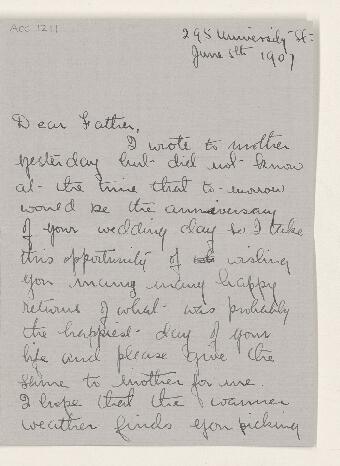 ACC 1211
295 University St:
June 5th 1907
Dear Father,
I wrote to mother
yesterday but did not know
at the time that to-morrow
would be the anniversary
of your wedding day so I take
this opportunity of wishing
you many many happy
returns of what was probably
the happiest day of your
life and please give the
same to mother for me.
I hope that the warmer
weather finds you picking